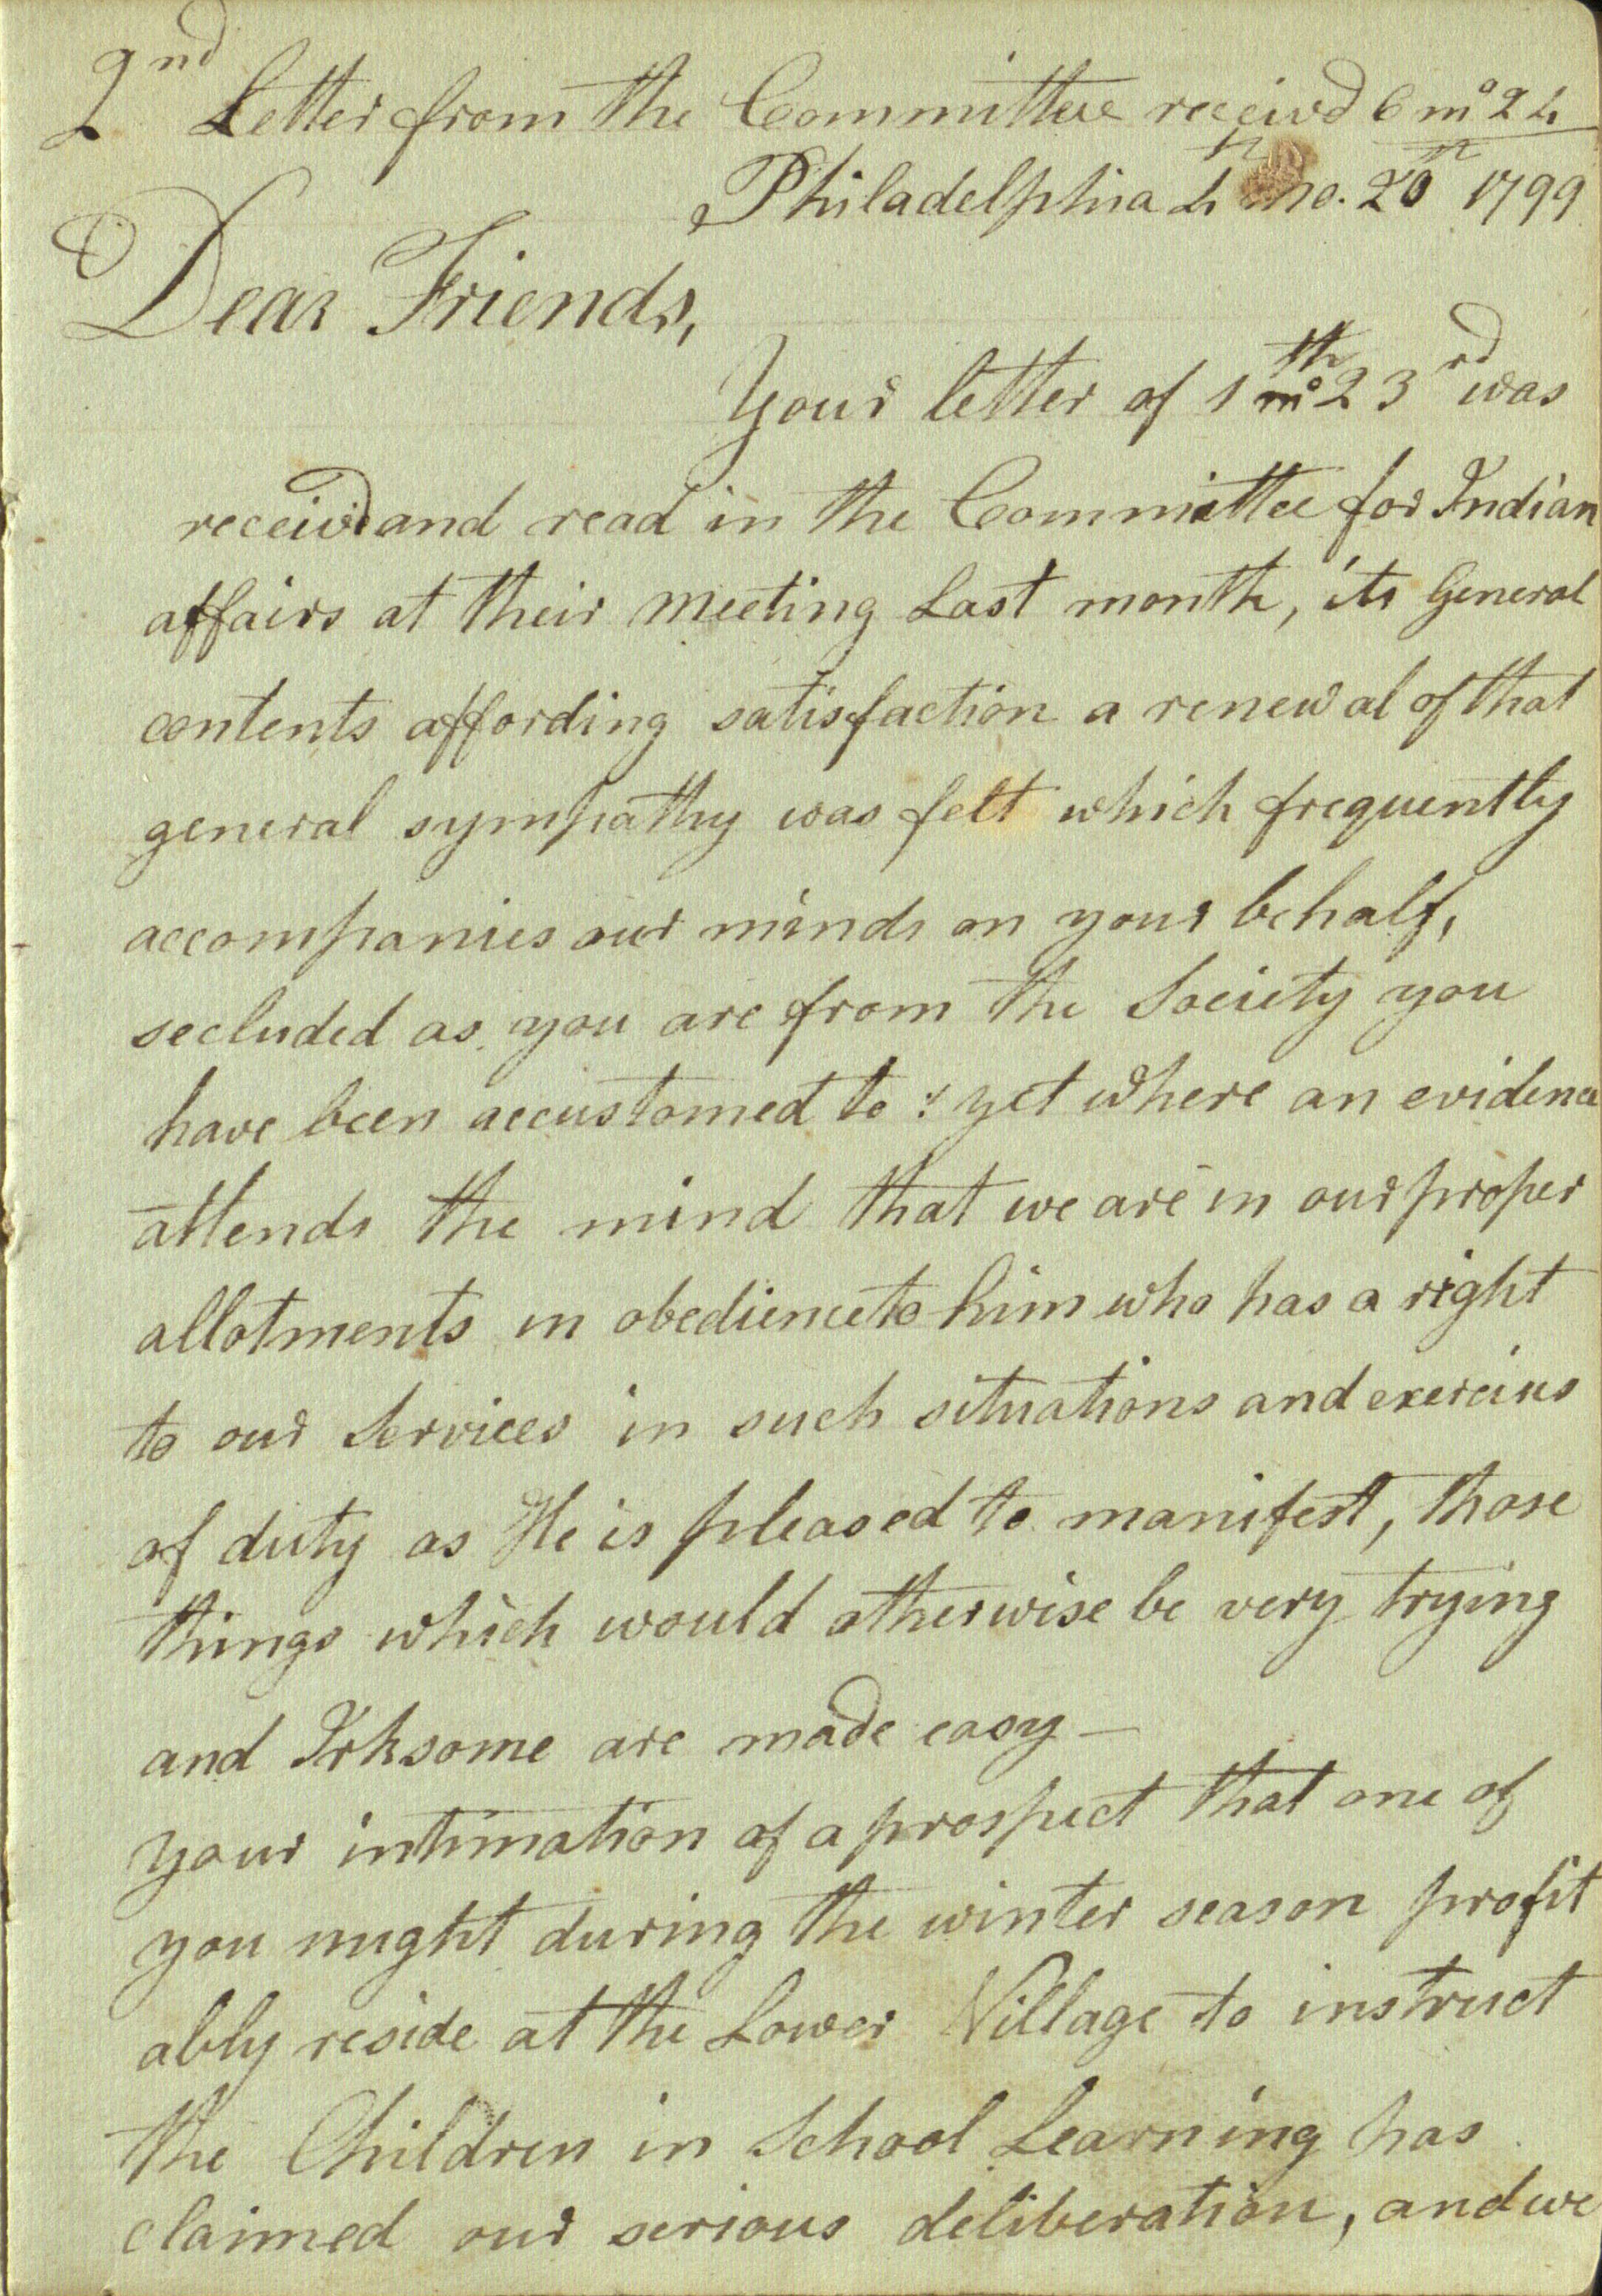 2nd Letter from the Committee receivd 6 mo 24
Philadelphia 4th mo. 20th 1799
Dear Friends,
Your letter of 1th mo 23rd was
receivd and read in the Committee for Indian
affairs at their meeting Last month, its General
contents affording satisfaction a renewal of that
general sympathy was felt which frequently
accompanies our minds on your behalf,
secluded as you are from the Society you
have been accustomed to: yet where an evidence
attends the mind that we are in our proper
allotments in obedience to him who has a right
to our Services in such situations and exercises
of duty as He is pleased to manifest, those
things which would otherwise be very trying
and Irksome are made easy —
your intimation of a prospect that one of
you might during the winter season profit
ably reside at the Lower Village to instruct
the Children in School Learning has
claimed our serious deliberation, and we